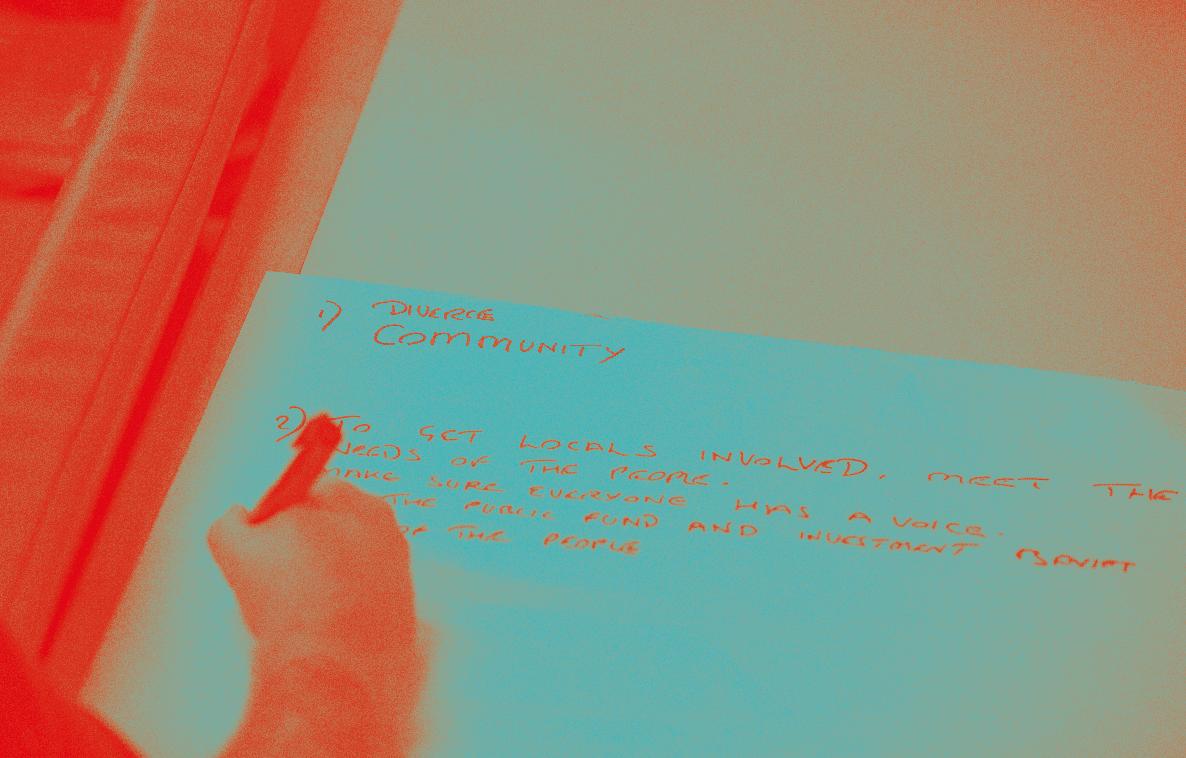 1) DIVERCE
COMMUNITY
2) TO GET LOCALS INVOLVED, MEET THE
NEEDS OF THE PEOPLE.
MAKE SURE EVERYONE HAS A VOICE.
THE PUBLIC FUND AND INVESTMENT
OF THE PEOPLE